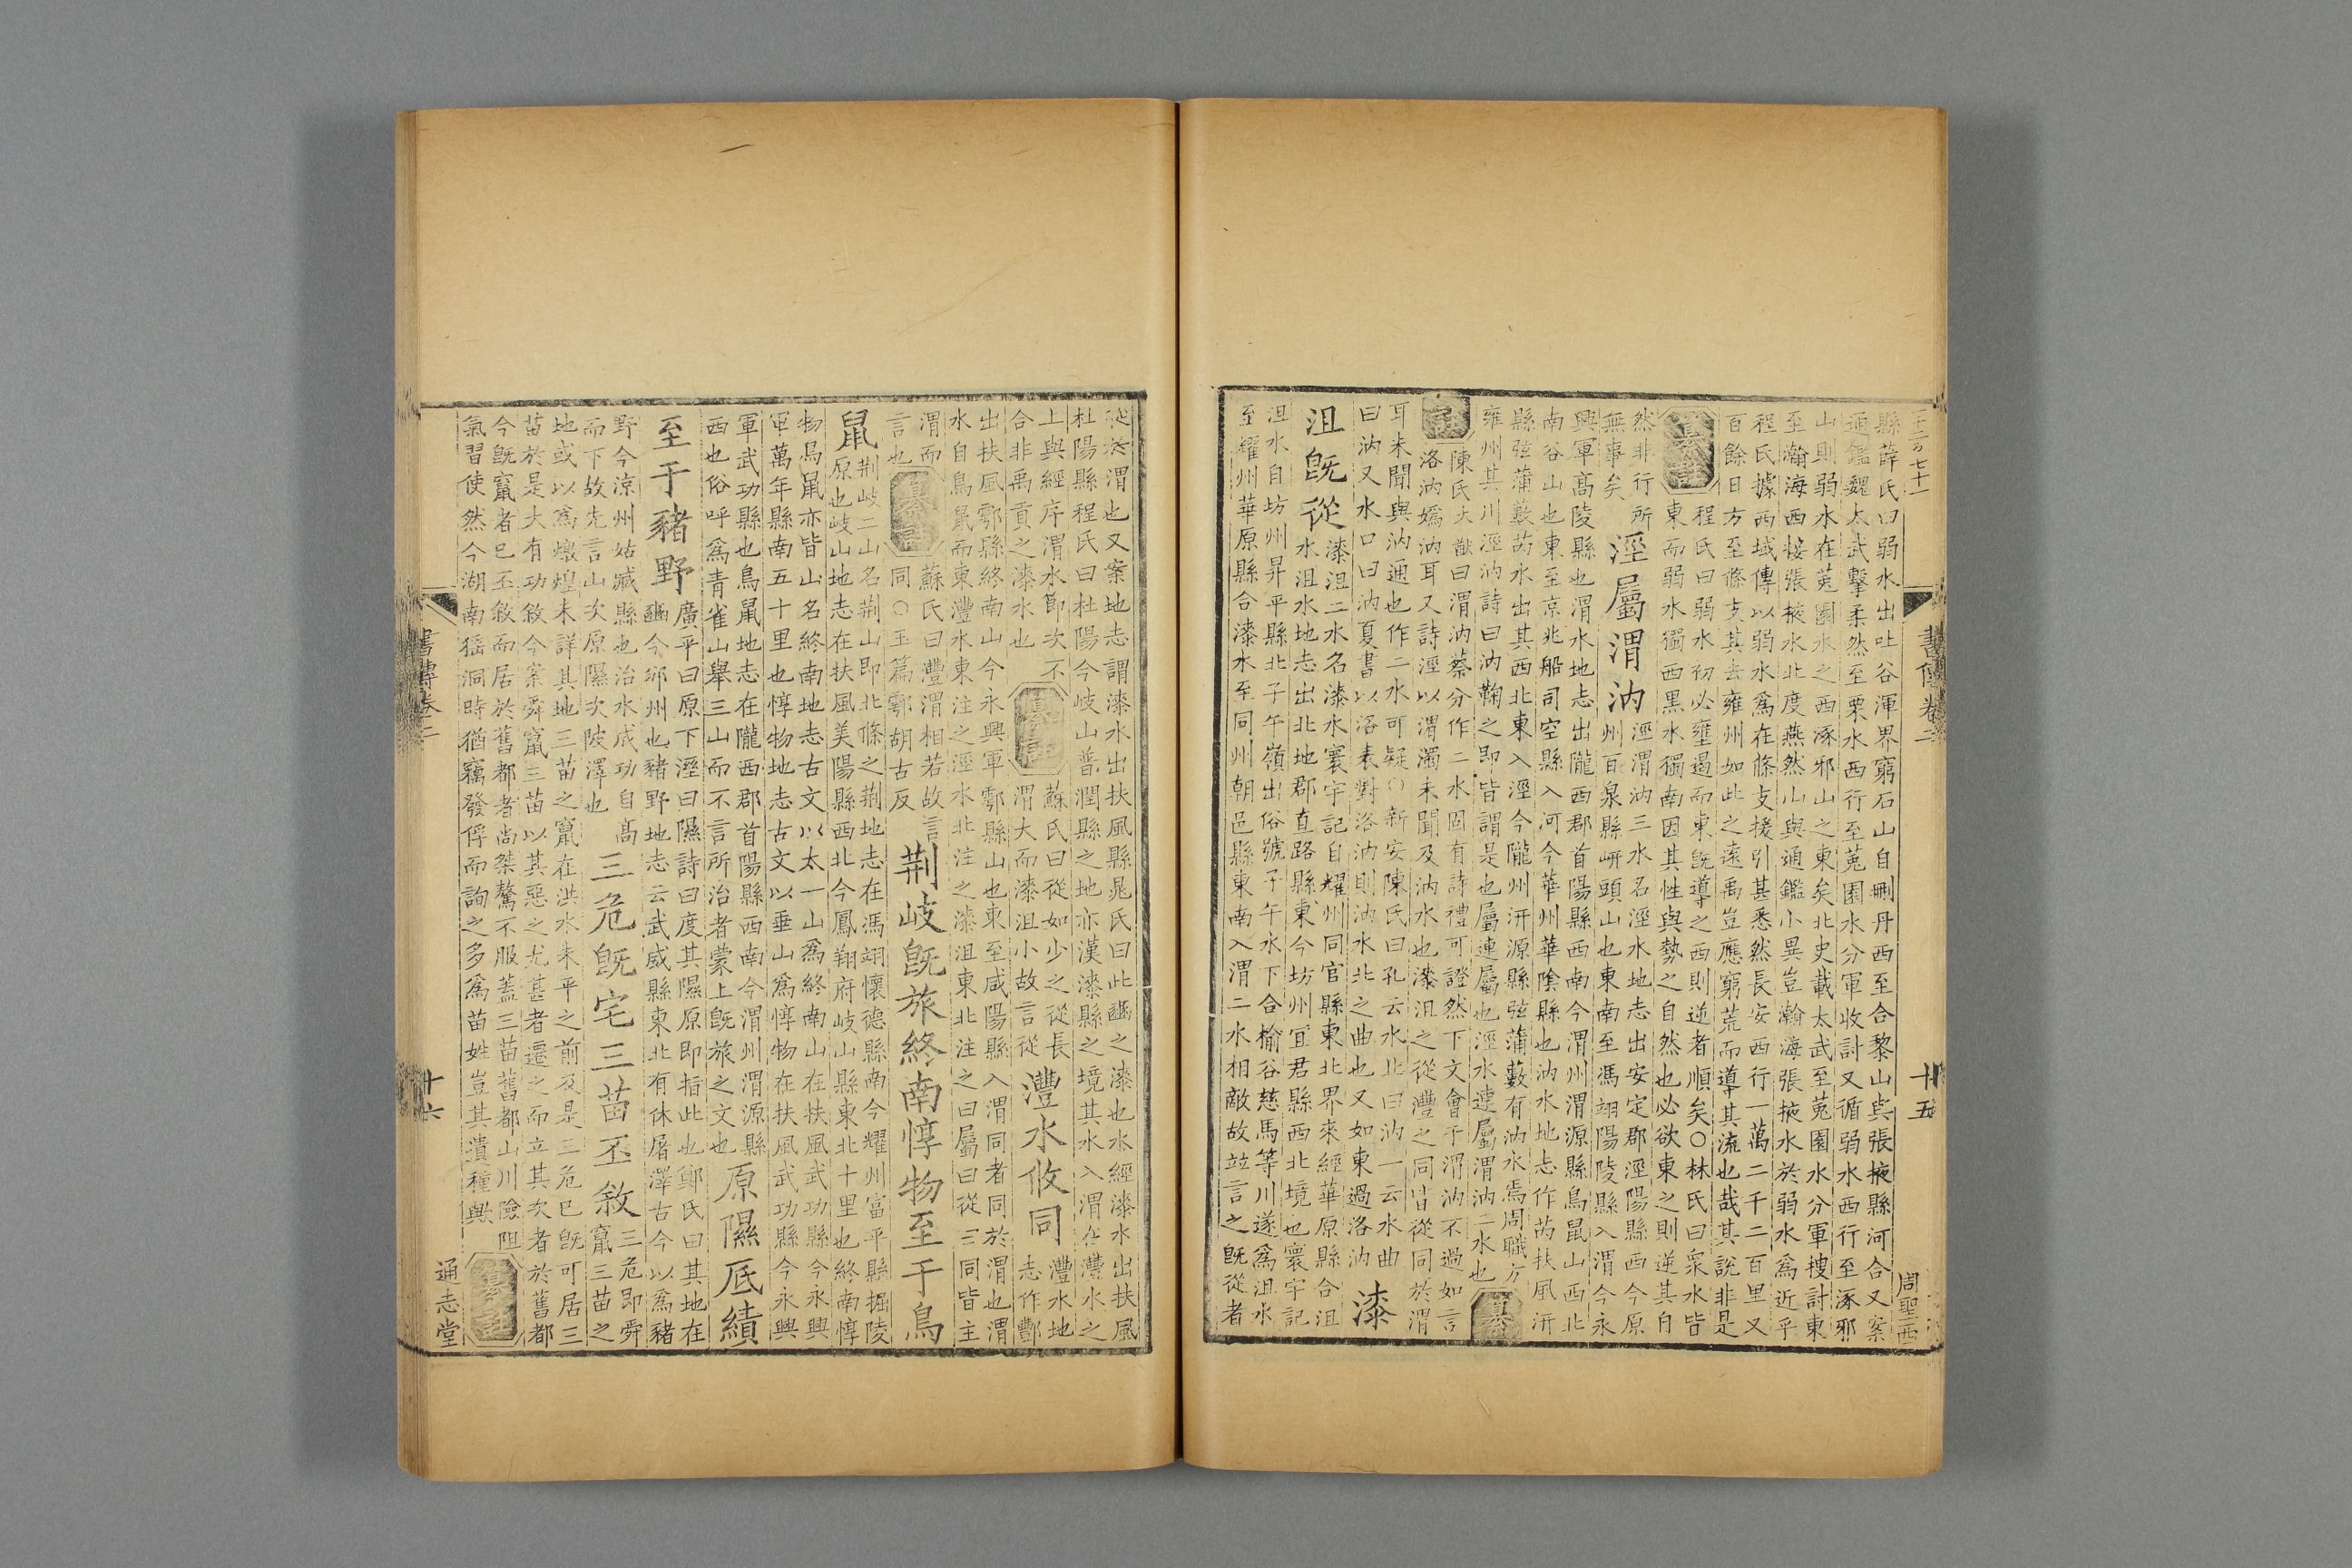 縣薛氏曰弱水出吐谷渾界窮石山自刪丹西至合黎山與張掖縣河合又案
通鑑魏太武擊柔然至栗水西行至菟園水分軍收討又循弱水西行至涿邪
山則弱水在菟園水之西涿邪山之東矣北史載太武至菟園水分軍搜討東
至瀚海西接張掖水北度燕然山與通鑑小異豈瀚海張掖水於弱水爲近乎
程氏據西域傳以弱水爲在條支援引甚悉然長安西行一萬二千二百里又
百餘日方至條支其去雍州如此之遠禹豈應窮荒而導其流也哉其說非是
纂註
程氏曰弱水初必壅遏而東旣導之西則逆者順矣○林氏曰衆水皆
東而弱水獨西黑水獨南因其性與勢之自然也必欲東之則逆其自
然非行所
無事矣
涇屬渭汭
涇渭汭三水名涇水地志出安定郡涇陽縣西今原
州百泉縣岍頭山也東南至馮翊陽陵縣入渭今永
興軍高陵縣也渭水地志出隴西郡首陽縣西南今渭州渭源縣鳥鼠山西北
南谷山也東至京兆船司空縣入河今華州華陰縣也汭水地志作芮扶風汧
縣弦蒲藪芮水出其西北東入涇今隴州汧源縣弦蒲藪有汭水焉周職方
雍州其川涇汭詩曰汭鞫之即皆謂是也屬連屬也涇水連屬渭汭二水也
纂註
陳氏大猷曰渭汭蔡分作二水固有詩禮可證然下文會于渭汭不過如言
洛汭嬀汭耳又詩涇以渭濁未聞及汭水也漆沮之從灃之同皆從同於渭
耳未聞與汭通也作二水可疑○新安陳氏曰孔云水北曰汭一云水曲
曰汭又水口曰汭夏書以洛表對洛汭則汭水北之曲也又如東過洛汭
漆
沮旣從
漆沮二水名漆水寰宇記自耀州同官縣東北界來經華原縣合沮
水沮水地志出北地郡直路縣東今坊州宜君縣西北境也寰宇記
沮水自坊州昇平縣北子午嶺出俗號子午水下合榆谷慈馬等川遂爲沮水
至耀州華原縣合漆水至同州朝邑縣東南入渭二水相敵故竝言之旣從者
書傳卷二
十五
周聖西
從於渭也又案地志謂漆水出扶風縣晁氏曰此豳之漆也水經漆水出扶風
杜陽縣程氏曰杜陽今岐山普潤縣之地亦漢漆縣之境其水入渭在灃水之
上與經序渭水節次不
合非禹貢之漆水也
纂註
蘇氏曰從如少之從長
渭大而漆沮小故言從
灃水攸同
灃水地
志作酆
出扶風鄠縣終南山今永興軍鄠縣山也東至咸陽縣入渭同者同於渭也渭
水自鳥鼠而東灃水東注之涇水北注之漆沮東北注之曰屬曰從三同皆主
渭而
言也
纂註
蘇氏曰灃渭相若故言
同○玉篇鄠胡古反
荆岐旣旅終南惇物至于鳥
鼠
荆岐二山名荆山即北條之荆地志在馮翊懷德縣南今耀州富平縣掘陵
原也岐山地志在扶風美陽縣西北今鳳翔府岐山縣東北十里也終南惇
物鳥鼠亦皆山名終南地志古文以太一山爲終南山在扶風武功縣今永興
軍萬年縣南五十里也惇物地志古文以垂山爲惇物在扶風武功縣今永興
軍武功縣也鳥鼠地志在隴西郡首陽縣西南今渭州渭源縣
西也俗呼爲青雀山舉三山而不言所治者蒙上旣旅之文也
原隰厎績
至于豬野
廣平曰原下溼曰隰詩曰度其隰原即指此也鄭氏曰其地在
豳今邠州也豬野地志云武威縣東北有休屠澤古今以爲豬
野今涼州姑臧縣也治水成功自高
而下故先言山次原隰次陂澤也
三危旣宅三苗丕敘
三危即舜
竄三苗之
地或以爲燉煌未詳其地三苗之竄在洪水未平之前及是三危已旣可居三
苗於是大有功敘今案舜竄三苗以其惡之尤甚者遷之而立其次者於舊都
今旣竄者已丕敘而居於舊都者尚桀驁不服蓋三苗舊都山川險阻
氣習使然今湖南猺洞時猶竊發俘而詢之多爲苗姓豈其遺種與
纂註
書傳卷二
十六
通志堂